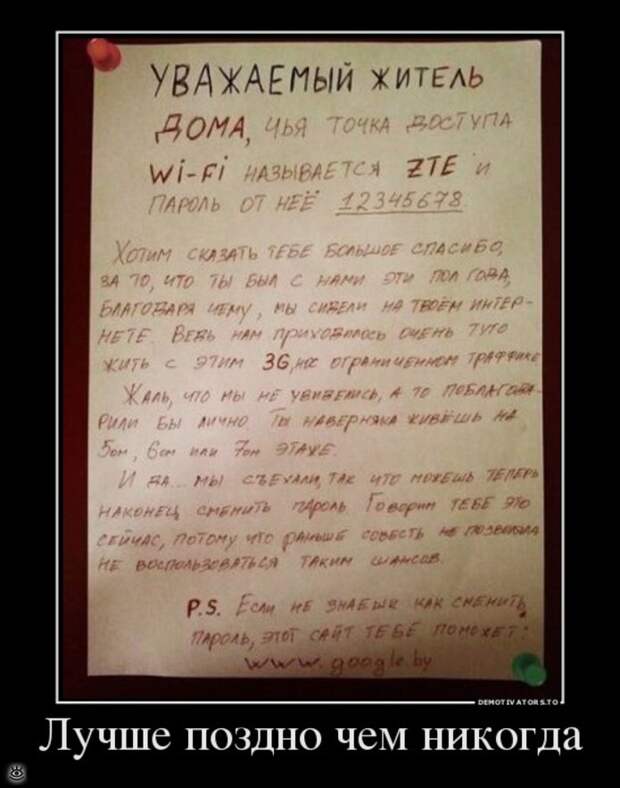 УВАЖАЕМЫЙ ЖИТЕЛЬ
ДОМА, ЧЬЯ ТОЧКА ДОСТУПА
Wi-Fi НАЗЫВАЕТСЯ ZTE И
ПАРОЛЬ ОТ НЕЁ 12345678.
ХОТИМ СКАЗАТЬ ТЕБЕ БОЛЬШОЕ СПАСИБО,
ЗА ТО, ЧТО ТЫ БЫЛ С НАМИ ЭТИ ПОЛ ГОДА,
БЛАГОДАРЯ ЧЕМУ, МЫ СИДЕЛИ НА ТВОЁМ ИНТЕР-
НЕТЕ. ВЕДЬ НАМ ПРИХОДИЛОСЬ ОЧЕНЬ ТУГО
ЖИТЬ С ЭТИМ 3G, ОГРАНИЧЕННОМ ТРАФФИКЕ
ЖАЛЬ, ЧТО МЫ НЕ УВИДЕЛИСЬ, А ТО ПОБЛАГОДА-
РИЛИ БЫ ЛИЧНО. ТЫ НАВЕРНЯКА ЖИВЁШЬ НА
5ом, 6ом ИЛИ 7ом ЭТАЖЕ.
И ДА... МЫ СЪЕХАЛИ, ТАК ЧТО МОЖЕШЬ ТЕПЕРЬ
НАКОНЕЦ СМЕНИТЬ ПАРОЛЬ. ГОВОРИМ ТЕБЕ ЭТО
СЕЙЧАС, ПОТОМУ ЧТО РАНЬШЕ СОВЕСТЬ НЕ ПОЗВОЛЯЛА
НЕ ВОСПОЛЬЗОВАТЬСЯ ТАКИМ ШАНСОМ.
P.S. ЕСЛИ НЕ ЗНАЕШЬ КАК СМЕНИТЬ
ПАРОЛЬ, ЭТОТ САЙТ ТЕБЕ ПОМОЖЕТ:
www.google.by
DEMOTIVATORS.TO
Лучше поздно чем никогда